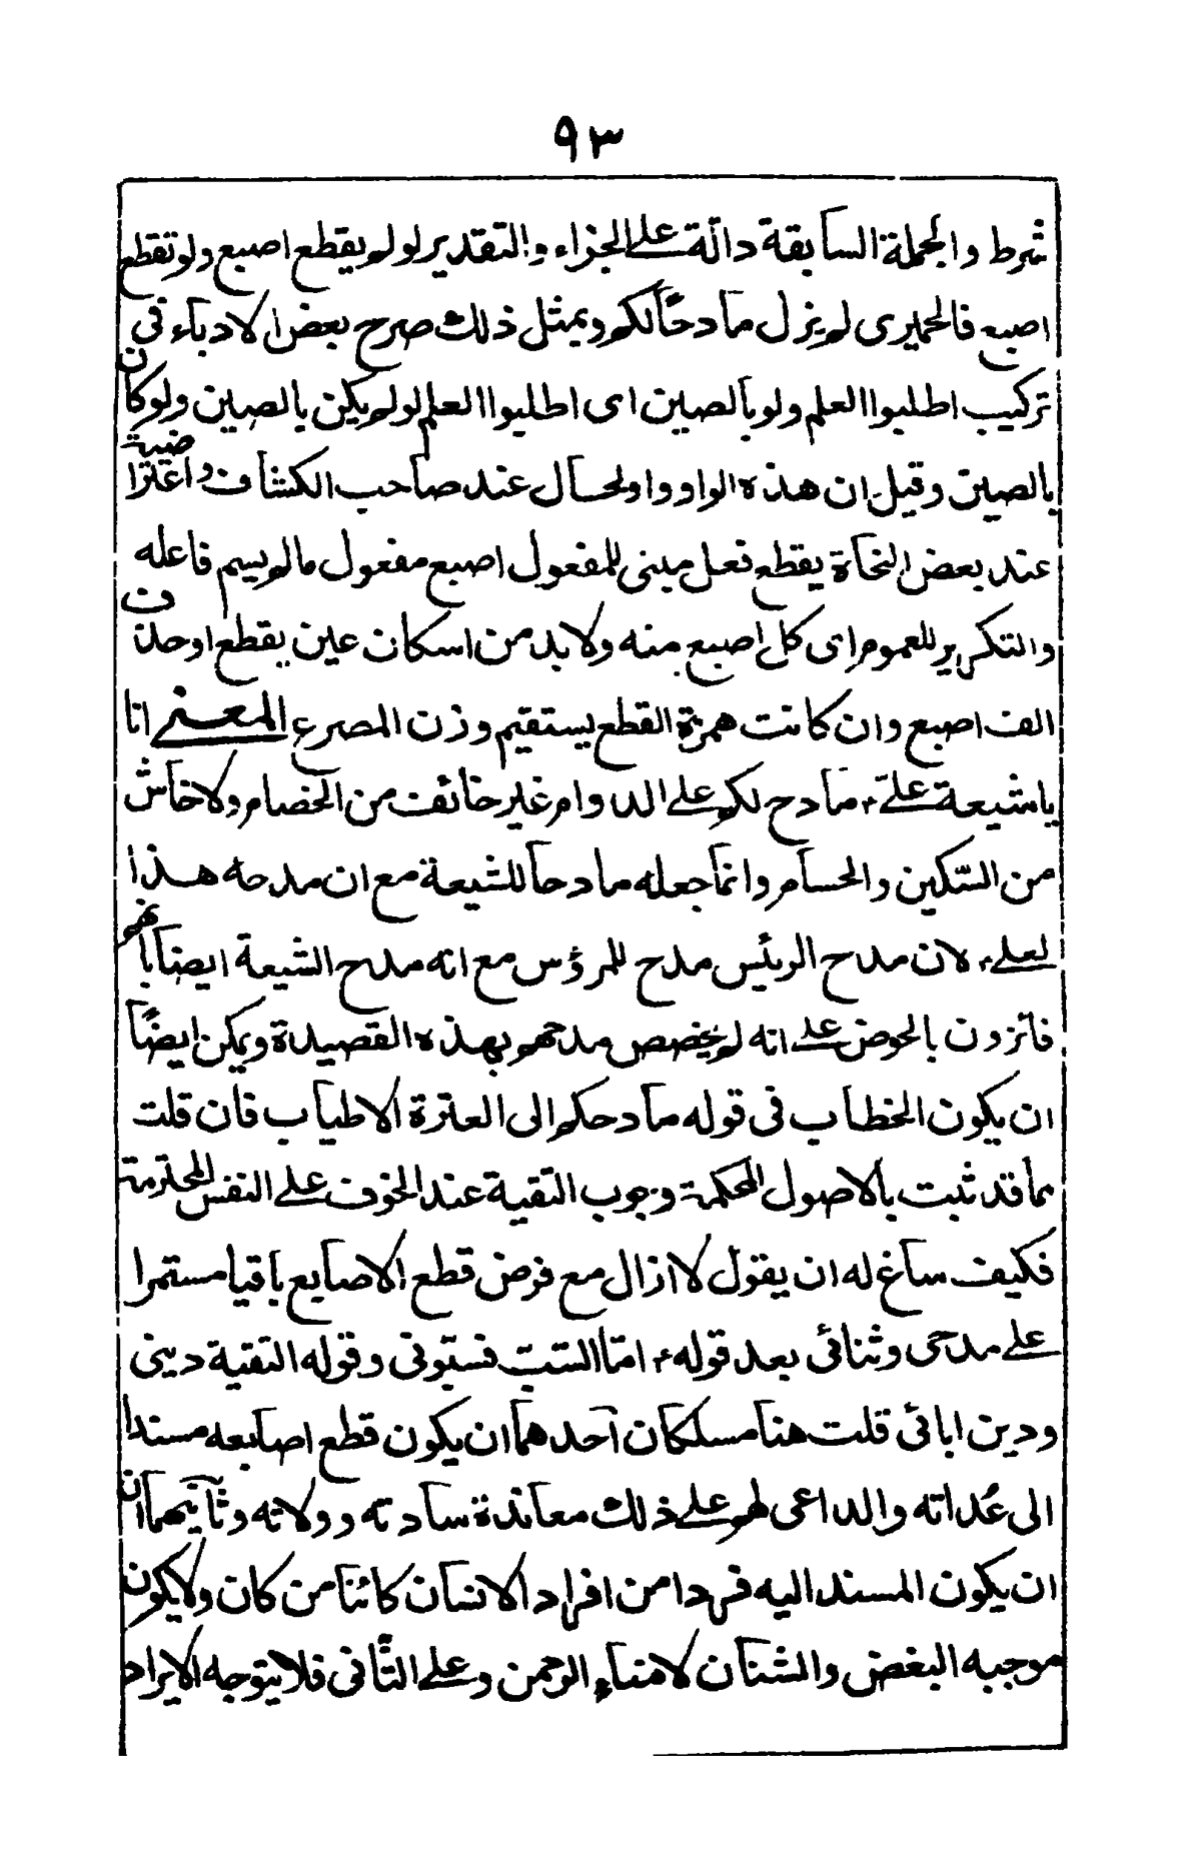 ٩٣
شرط والجملة السابقة دالّة على الجزاء والتقدير لو لم يقطع اصبع ولو تقطع
اصبع فالحميرى لم يزل مادحًا لكم وبمثل ذلك صرح بعض الادباء فى
تركيب اطلبوا العلم ولو بالصين اى اطلبوا العلم لو لم يكن بالصين ولو كان
بالصين وقيل ان هذه الواو واو لحال عند صاحب الكشاف واعتراضية
عند بعض النحاة يقطع فعل مبنى للمفعول اصبع مفعول مالم يسم فاعله
والتكرير للعموم اى كل اصبع منه ولا بد من اسكان عين يقطع او حذف
الف اصبع وان كانت همزة القطع يستقيم وزن المصرع المعنى انا
يا شيعة علىّ ؑ مادح لكم على الدوام غير خائف من الخصام ولا خاش
من السّكين والحسام وانما جعله مادحا للشيعة مع ان مدحه هذا
لعلى ؑ لان مدح الرئيس مدح للمرؤس مع انه مدح الشيعة ايضا بانهم
فائزون بالحوض على انه لم يخصص مدحهم بهذه القصيدة ويمكن ايضًا
ان يكون الخطاب فى قوله مادحكم الى العترة الاطياب فان قلت
بما قد ثبت بالاصول المحكمة وجوب التقية عند الخوف على النفس المحترمة
فكيف ساغ له ان يقول لا ازال مع فرض قطع الاصابع باقيا مستمرا
على مدحى وثنائى بعد قوله ؑ امّا السّبّ فسبّونى وقوله التقية دينى
ودين ابائى قلت هنا مسلكان احدهما ان يكون قطع اصابعه مسندا
الى عُداته والداعى لهم على ذلك معاندة سادته وولاته وثانيهما ان
ان يكون المسند اليه فردا من افراد الانسان كائنا من كان ولا يكون
موجبه البغض والشنآن لامناء الرحمن وعلى الثّانى فلا يتوجه الايراد